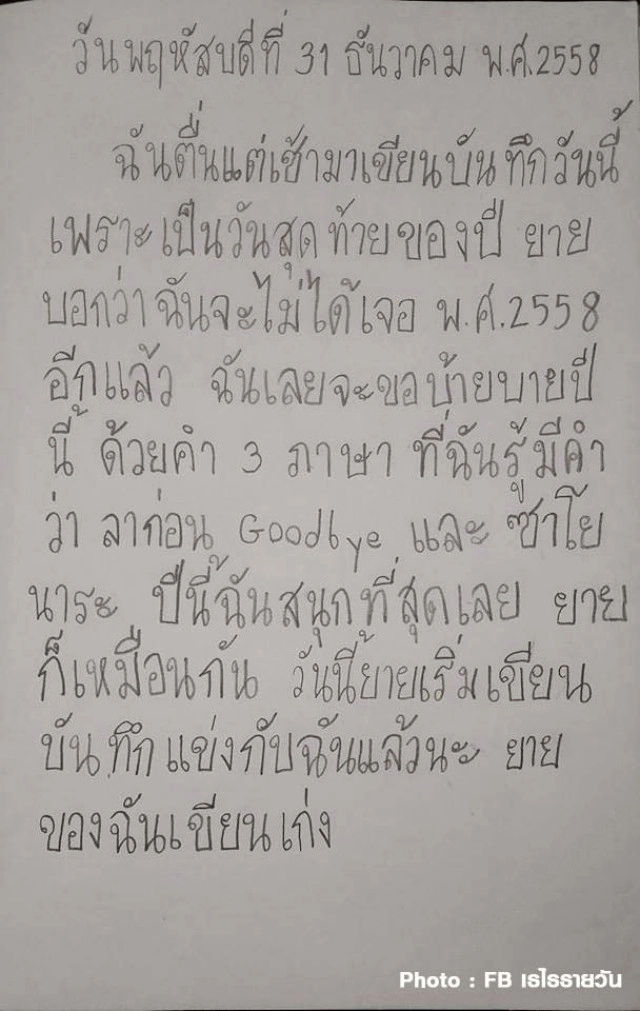 วันพฤหัสบดีที่ 31 ธันวาคม พ.ศ.2558
ฉันตื่นแต่เช้ามาเขียนบันทึกวันนี้
เพราะเป็นวันสุดท้ายของปี ยาย
บอกว่าฉันจะไม่ได้เจอ พ.ศ.2558
อีกแล้ว ฉันเลยจะขอบ้ายบายปี
นี้ ด้วยคำ 3 ภาษา ที่ฉันรู้มีคำ
ว่า ลาก่อน Goodbye และ ซาโย
นาระ ปีนี้ฉันสนุกที่สุดเลย ยาย
ก็เหมือนกัน วันนี้ยายเริ่มเขียน
บันทึกแข่งกับฉันแล้วนะ ยาย
ของฉันเขียนเก่ง
Photo : FB เรไรรายวัน